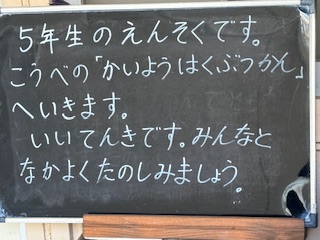 5年生のえんそくです。
こうべの「かいようはくぶつかん」
へいきます。
いいてんきです。みんなと
なかよくたのしみましょう。